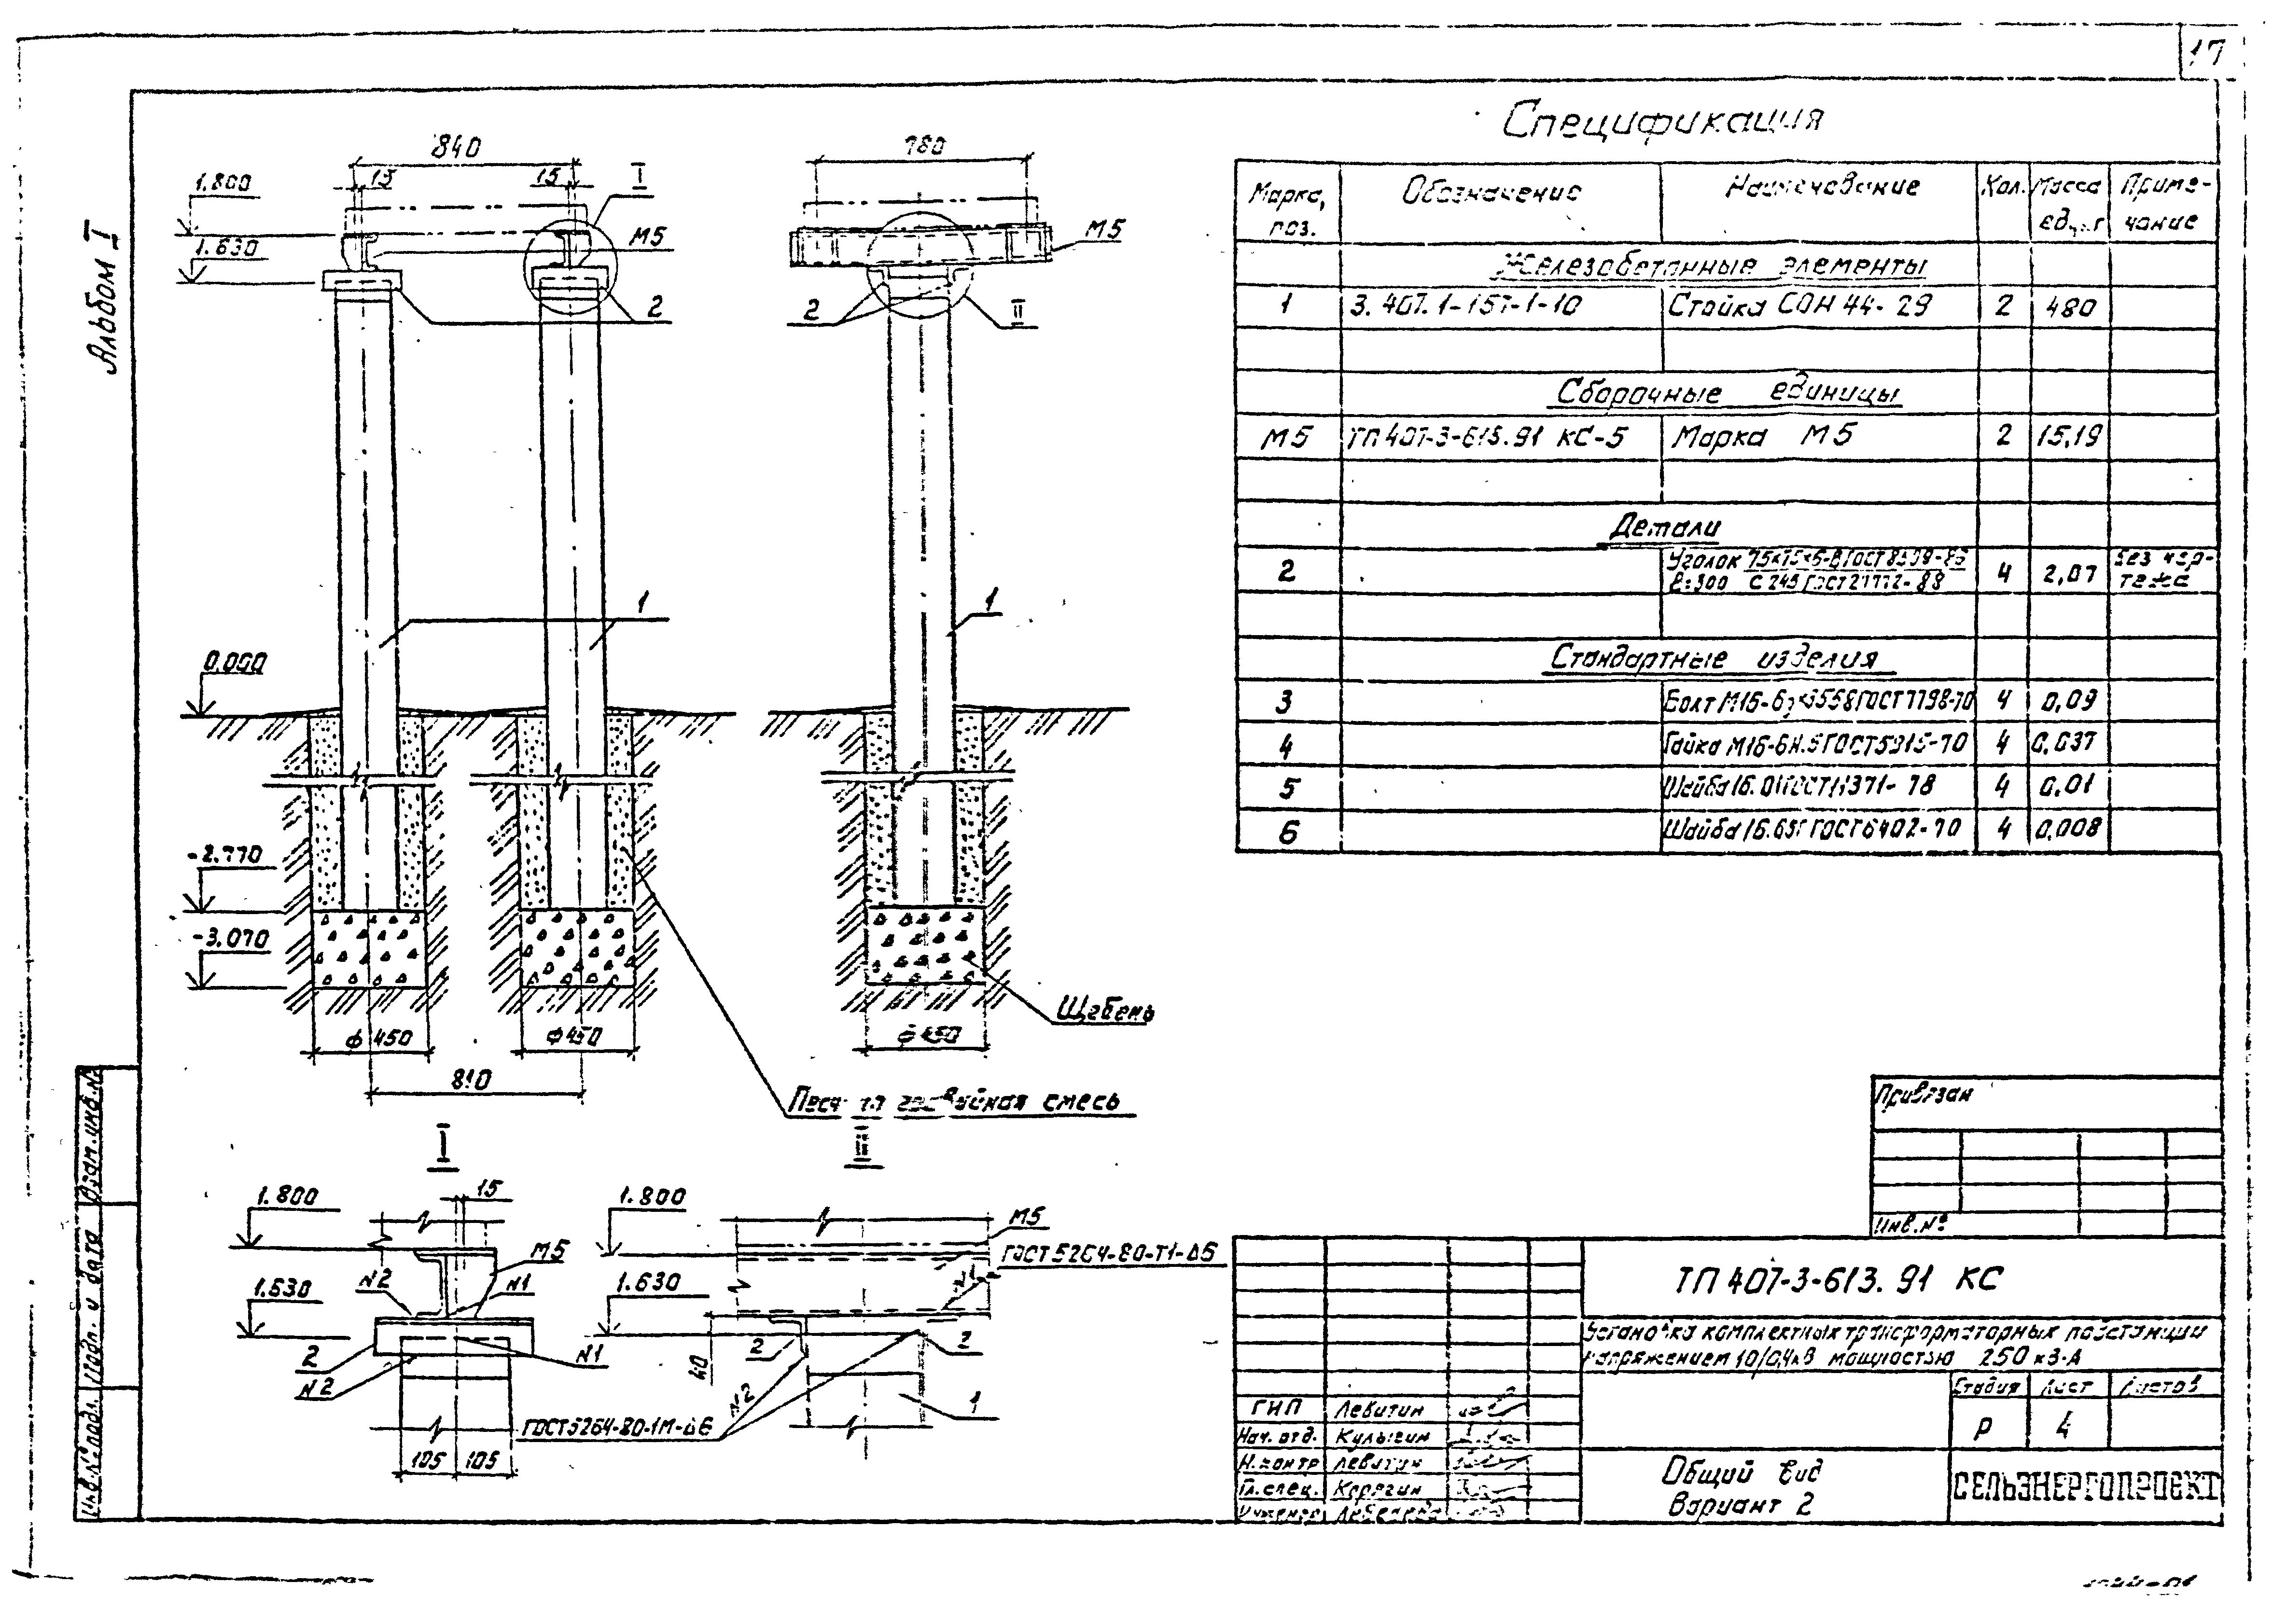 17
Альбом I
840
15
15
I
1.800
1.630
М5
2
1
0.000
-2.770
-3.070
ф 450
ф 450
810
780
М5
2
II
1
Щебень
ф 450
смесь
I
15
1.800
М5
N2
N1
1.630
2
N1
N2
105
105
II
1.800
М5
ГОСТ 5264-80-Т1-Δ6
1.630
2
2
40
N2
1
ГОСТ 5264-80-1М-Δ6
Спецификация
Марка, поз.
Обозначение
Наименование
Кол.
Масса ед., кг
Приме-
чание
Железобетонные элементы
1 3.407.1-157-1-10 Стойка СОН 44-29 2 480
Сборочные единицы
М5 ТП 407-3-613.91 КС-5 Марка М5 2 15,19
Детали
2 Уголок 75х75х6-В ГОСТ 8509-86 4 2,07 Без чер-
ℓ=300 С245 ГОСТ 27772-88 тежа
Стандартные изделия
3 Болт М16 ГОСТ 7798-70 4 0,09
4 Гайка М16-6Н.5 ГОСТ 5915-70 4 0,037
5 Шайба 16.01 ГОСТ 11371-78 4 0,01
6 Шайба 16.65Г ГОСТ 6402-70 4 0,008
Привязан
Инв.№
ТП 407-3-613.91 КС
Установка комплектных трансформаторных подстанции
напряжением 10/0,4кВ мощностью 250 кВ·А
Стадия Лист Листов
Р 4
ГИП Левитин
Нач. отд. Кулыгин
Н.контр Левитин
Гл.спец. Карягин
Инженер
Общий вид
Вариант 2
СЕЛЬЭНЕРГОПРОЕКТ
Взам.инв.№
Подп. и дата
Инв.№ подл.